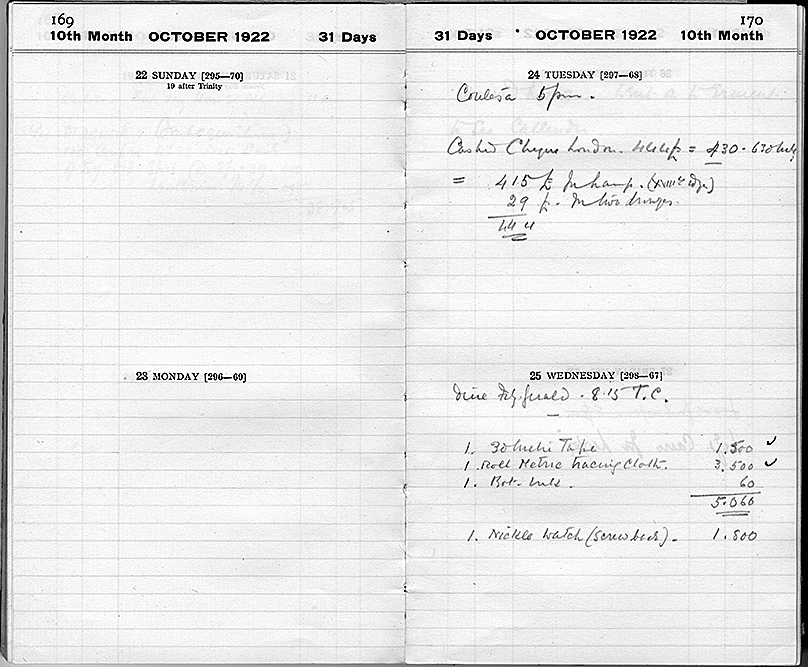 169
10th Month OCTOBER 1922 31 Days
22 SUNDAY [295—70]
19 after Trinity
23 MONDAY [296—69]
170
31 Days OCTOBER 1922 10th Month
24 TUESDAY [297—68]
5pm.
Cashed Cheque London. = 430 -
= 415 £ In
29 In two
444
25 WEDNESDAY [298—67]
Dine Fitzgerald - 8.15 T.C.
1. 30 metre Tape 1.500 ✓
1. Roll Metric tracing Cloth. 3.500 ✓
1. Bot. 60
5.060
1. Nickle Watch (screw back). 1.800